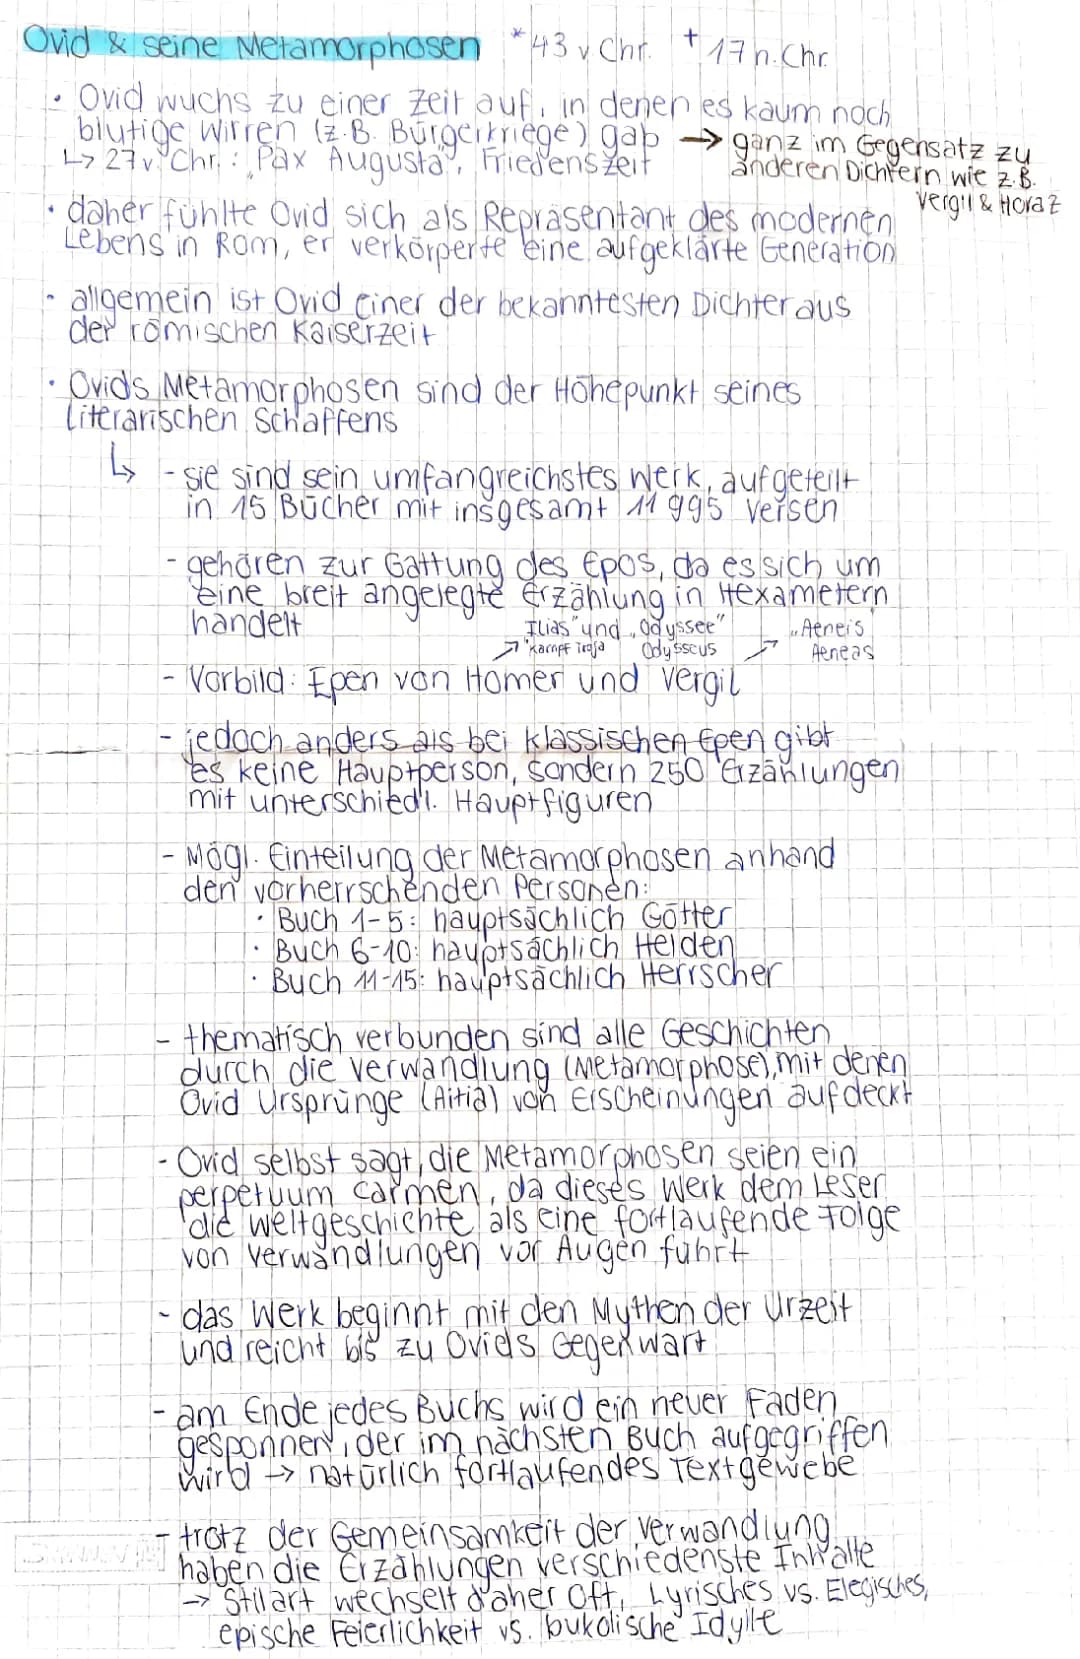 Ovid & seine Metamorphosen *43 v Chr. + 17 n. Chr.
• Ovid wuchs zu einer Zeit auf, in denen es kaum noch
blutige Wirren (z.B. Bürgerkriege) gab → ganz im Gegensatz zu
anderen Dichtern wie z.B.
Vergil & Horaz
↳ 27 v Chr.: „Pax Augusta", Friedenszeit
• daher fühlte Ovid sich als Repräsentant des modernen
Lebens in Rom, er verkörperte eine aufgeklärte Generation
• allgemein ist Ovid einer der bekanntesten Dichter aus
der römischen Kaiserzeit
• Ovids Metamorphosen sind der Höhepunkt seines
literarischen Schaffens
↳ - sie sind sein umfangreichstes Werk, aufgeteilt
in 15 Bücher mit insgesamt 11 995 Versen
- gehören zur Gattung des Epos, da es sich um
eine breit angelegte Erzählung in Hexametern
handelt
„Ilias" und „Odyssee" „Aeneis
↗ Kampf Troja Odysseus ↗ Aeneas
- Vorbild: Epen von Homer und Vergil
- jedoch anders als bei klassischen Epen gibt
es keine Hauptperson, sondern 250 Erzählungen
mit unterschiedl. Hauptfiguren
- Mögl. Einteilung der Metamorphosen anhand
den vorherrschenden Personen:
• Buch 1-5: hauptsächlich Götter
• Buch 6-10: hauptsächlich Helden
• Buch 11-15: hauptsächlich Herrscher
- thematisch verbunden sind alle Geschichten
durch die Verwandlung (Metamorphose), mit denen
Ovid Ursprünge (Aitia) von Erscheinungen aufdeckt
- Ovid selbst sagt, die Metamorphosen seien ein
perpetuum carmen, da dieses Werk dem Leser
die Weltgeschichte als eine fortlaufende Folge
von Verwandlungen vor Augen führt
- das Werk beginnt mit den Mythen der Urzeit
und reicht bis zu Ovids Gegenwart
- am Ende jedes Buchs wird ein neuer Faden
gesponnen, der im nächsten Buch aufgegriffen
wird → natürlich fortlaufendes Textgewebe
- trotz der Gemeinsamkeit der Verwandlung
haben die Erzählungen verschiedenste Inhalte
→ Stilart wechselt daher oft, Lyrisches vs. Elegisches,
epische Feierlichkeit vs. bukolische Idylle